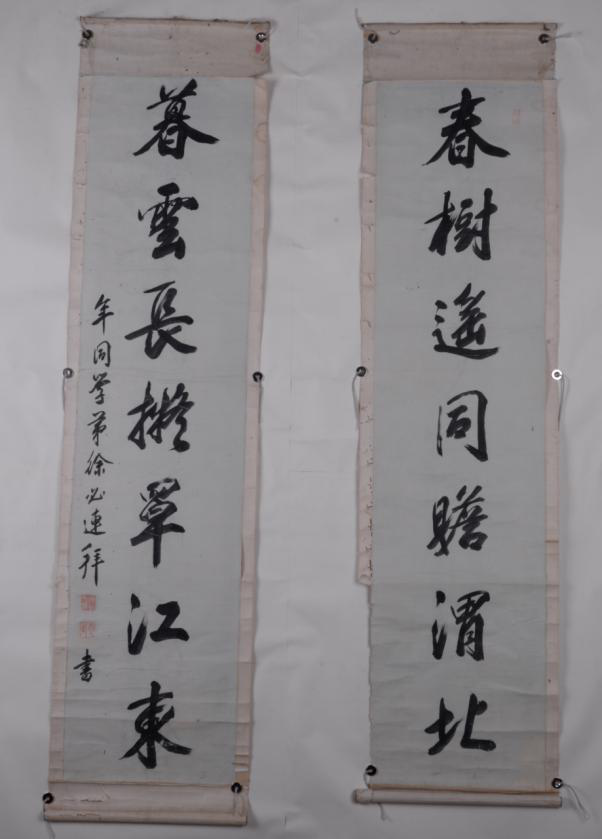 春樹遥同瞻渭北
暮雲長擬罩江東
年同学弟徐必連拜書